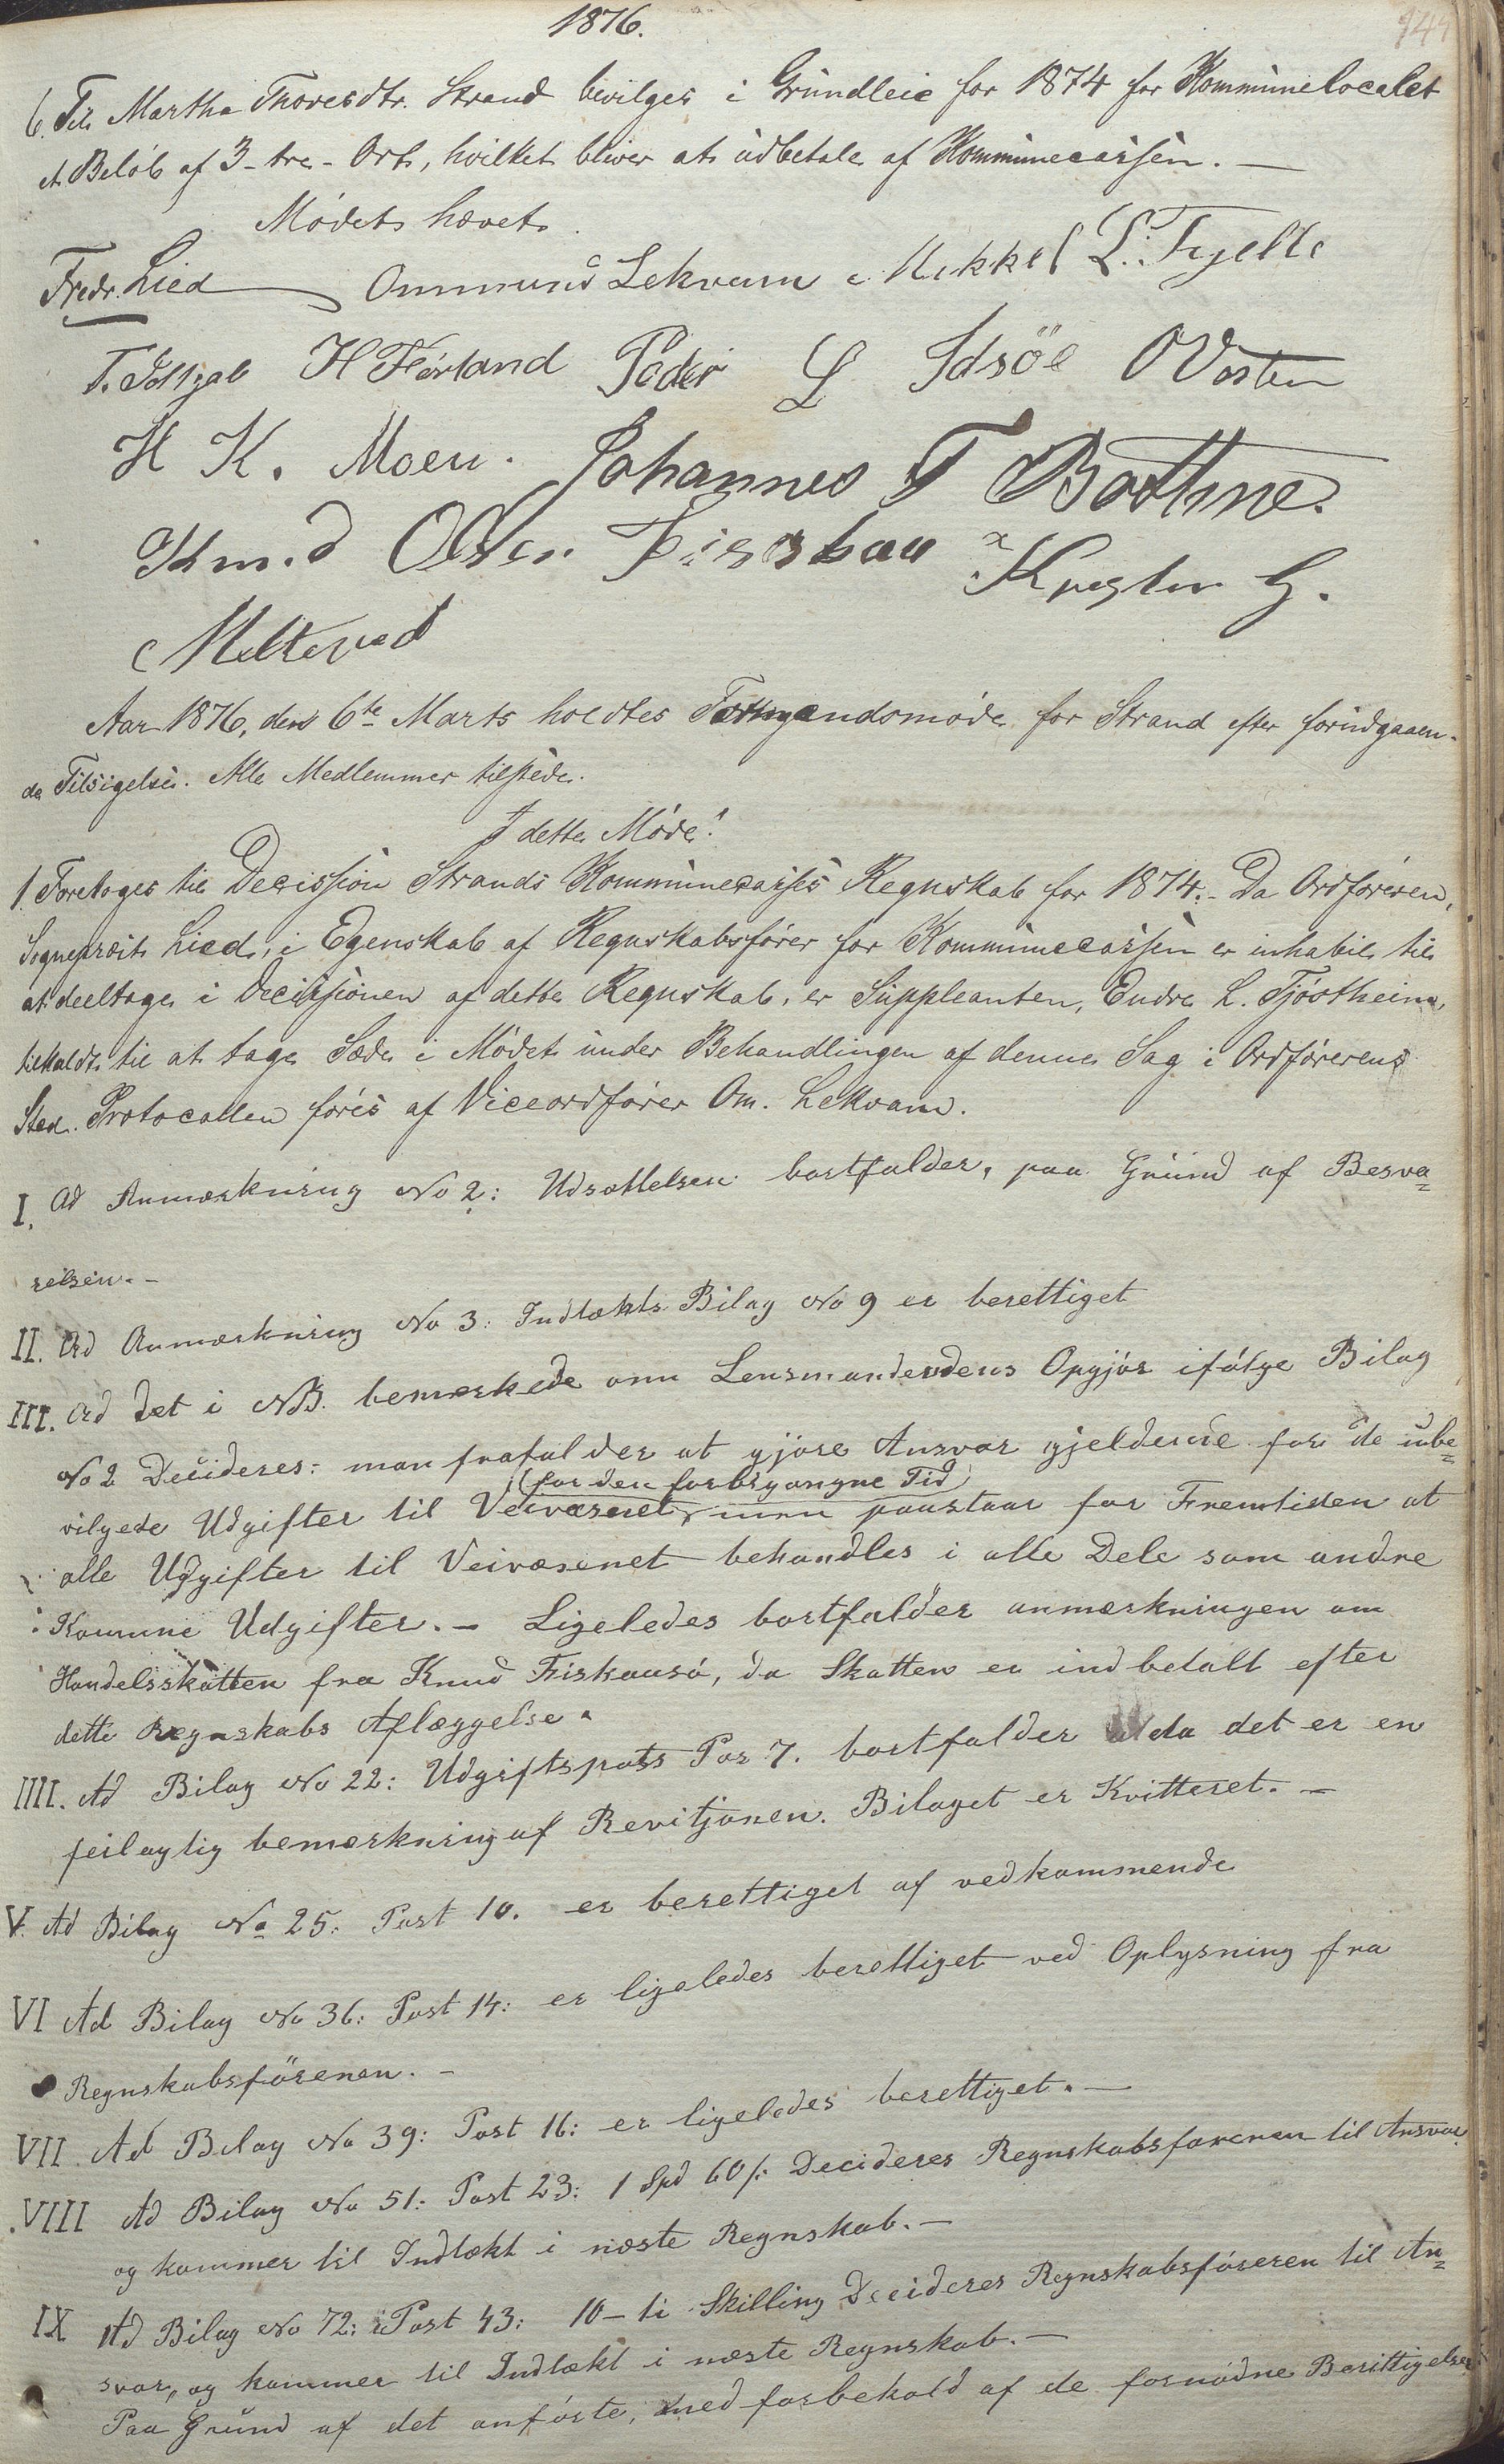 1876.
144
6. Til Martha Thoresdtr. Strand bevilges i Grundleie for 1874 for Kommunelocalet
et Beløb af 3 - tre - Ort, hvilket bliver at udbetale af Kommunecassen. —
Mødet hævet.
Fredr. Lied Ommund Lekvam Mikkel L. Fjelde
T. Holtzab HFørland Peder L Idsöe O Vosten
H K. Moen. Johannes T Bothne.
Knud Olsen Fiskaa Kresten G.
Meltveed
Aar 1876, den 6te Marts holdtes Formandsmøde for Strand efter forudgaaen-
de Tilsigelse. Alle Medlemmer tilstede.
I dette Møde:
1. Foretoges til Decission Strands Kommunecasses Regnskab for 1874. - Da Ordføreren,
Sognepræst Lied, i Egenskab af Regnskabsfører for Kommunecassen er inhabil til
at deeltage i Decissionen af dette Regnskab, er Suppleanten, Endre L. Tjøstheim,
tilkaldt til at tage Sæde i Mødet under Behandlingen af denne Sag i Ordførerens
Sted. Protocollen føres af Viceordfører Om. Lekvam.
I. Ad Anmærkning No 2: Udsættelsen bortfalder, paa Grund af Besva=
relsen. -
II. Ad Anmærkning No 3: Indtækts Bilag No 9 er berettiget
III. Ad det i NB. bemærkede om Lensmandendens Opgjør ifølge Bilag
No 2 Decideres: man frafalder at gjøre Ansvar gjeldende for de ube=
(for den forbigangne Tid)
vilgede Udgifter til Veivæsenet, men paastaar for Fremtiden at
alle Udgifter til Veivæsenet behandles i alle Dele som andre
Komune Udgifter. - Ligeledes bortfalder anmærkningen om
Handelsskatten fra Knud Fiskausø, da Skatten er indbetalt efter
dette Regnskabs Aflæggelse.
IIII. Ad Bilag No 22: Udgiftspost Pos 7. bortfalder da det er en
feilagtig bemærkning af Revitjonen. Bilaget er Kvitteret. -
V. Ad Bilag No 25: Post 10. er berettiget af vedkommende
VI Ad Bilag No 36: Post 14: er ligeledes berettiget ved Oplysning fra
Regnskabsføreren. -
VII Ad Bilag No 39: Post 16: er ligeledes berettiget. —
VIII Ad Bilag No 51: Post 23: 1 Spd 60 /: Decideres Regnskabsføreren til Ansvar
og kommer til Indtækt i næste Regnskab. —
IX Ad Bilag No 72: Post 43: 10 - ti Skilling Decideres Regnskabsføreren til An=
svar, og kommer til Indtækt i næste Regnskab. —
Paa Grund af det anførte, med forbehold af de fornødne Berittigelser